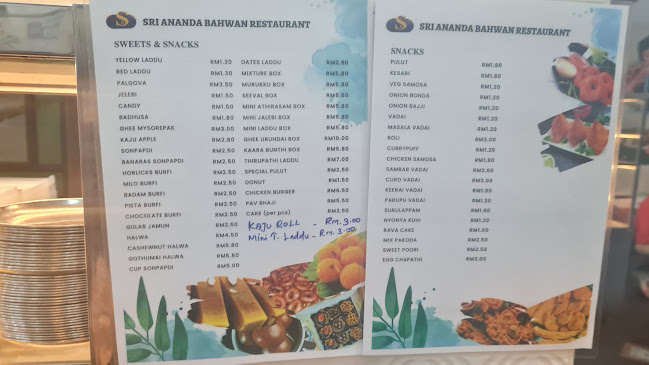 SRI ANANDA BAHWAN RESTAURANT
SWEETS & SNACKS
YELLOW LADDU RM1.30 DATES LADDU RM2.90
RED LADDU RM1.30 MIXTURE BOX RM5.80
PALGOVA RM3.50 MURUKKU BOX RM5.80
JELEBI RM1.50 SEEVAL BOX RM5.80
CANDY RM1.50 MINI ATHIRASAM BOX RM5.80
BADHUSA RM1.80 MINI JALEBI BOX RM5.80
GHEE MYSOREPAK RM3.00 MINI LADDU BOX RM5.80
KAJU APPLE RM2.80 GHEE URUNDAI BOX RM10.00
SONPAPDI RM2.50 KAARA BUNTHI BOX RM5.80
BANARAS SONPAPDI RM2.50 THIRUPATHI LADDU RM7.00
HORLICKS BURFI RM2.50 SPECIAL PULUT RM2.50
MILO BURFI RM2.50 DONUT RM1.50
BADAM BURFI RM2.50 CHICKEN BURGER RM6.50
PISTA BURFI RM2.50 PAV BHAJI RM5.50
CHOCOLATE BURFI RM2.50 CAKE (per pcs) RM2.50
GULAB JAMUN RM2.50 KAJU ROLL - RM. 3.00
HALWA RM4.50 Mini T. Laddu - RM. 3.00
CASHEWNUT HALWA RM5.80
GOTHUMAI HALWA RM5.80
CUP SONPAPDI RM5.00
SRI ANANDA BAHWAN RESTAURANT
SNACKS
PULUT RM1.80
KESARI RM1.80
VEG SAMOSA RM1.20
ONION BONDA RM1.20
ONION BAJJI RM1.20
VADAI RM1.20
MASALA VADAI RM1.20
BOLI RM2.00
CURRYPUFF RM1.20
CHICKEN SAMOSA RM1.80
SAMBAR VADAI RM2.50
CURD VADAI RM3.00
KEERAI VADAI RM1.20
PARUPU VADAI RM1.20
SURULAPPAM RM1.80
NYONYA KUIH RM1.20
RAVA CAKE RM1.20
MIX PAKODA RM2.50
SWEET POORI RM2.50
EGG CHAPATHI RM3.00